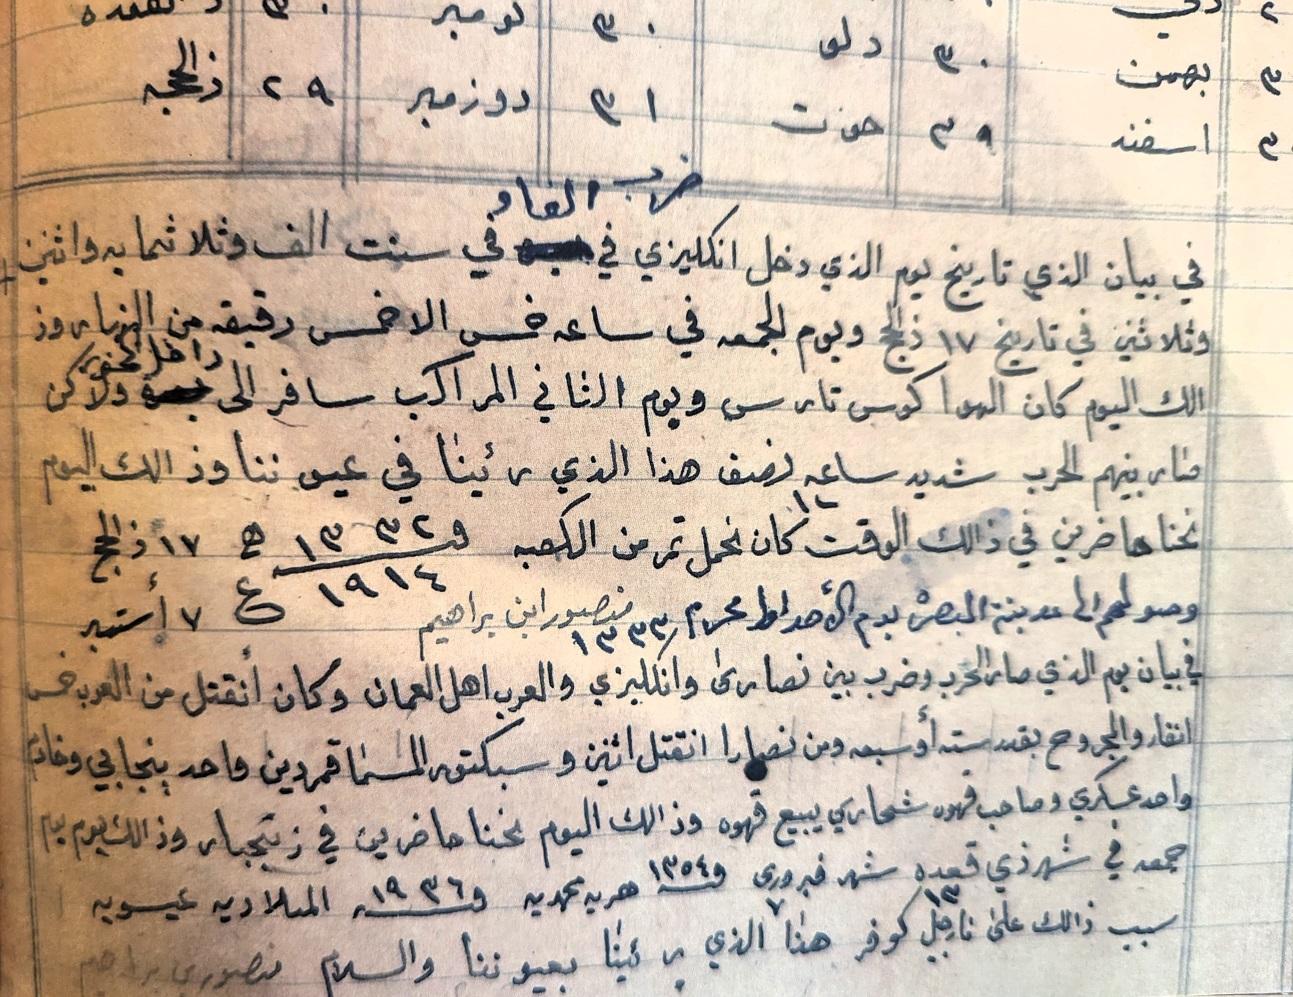 دلو ٣٠ نومبر ٣٠
بهمن
اسفند حوت ٢٩ دوزمبر ٣١ ذالحجه ٢٩
ضرب الفاو
في بيان الذي تاريخ يوم الذي دخل انكليزي في في سنت الف وثلاثمايه واثنين
وثلاثين في تاريخ ١٧ ذلحج ويوم لجمعه في ساعه خمس الا خمس دقيقه من النهار وذ
داخل
الك اليوم كان الهوا كوس تارس ويوم الثاني المراكب سافر الى ولاكن
صار بينهم لحرب شديد ساعه نصف هذا الذي رئينا في عيوننا وذالك اليوم
نحنا حاضرين في ذالك الوقت كان نحمل تمر من الكصبه ١٣٣٢ ه ١٧ ذالحج
١٩١٤ ع ٧ أستبر
وصولهم الى مدينة البصرة يوم الأحد محرم ١٣٣٣ منصور ابن براهيم
في بيان يوم الذي صار لحرب وضرب بين نصارى وانكليزي والعرب اهل العمان وكان أنقتل من العرب خمس
انفار والمجروح بقدر سته أو سبعه ومن نصارا انقتل اثنين وسبكتور المسما قمردين واحد پنجابي وخادم
واحد عسكري وصاحب قهوه شحاري يبيع قهوه وذالك اليوم نحنا حاضرين في زنجبار وذالك يوم يوم
جمعه في شهر ذي قعده ١٣ شهر فبروري ٧ ١٣٥٤ هريه محمديه ١٩٣٦ الميلاديه عيسويه
سبب ذالك على نارجيل كوفر هذا الذي رئينا بعيوننا والسلام منصوري براهيم